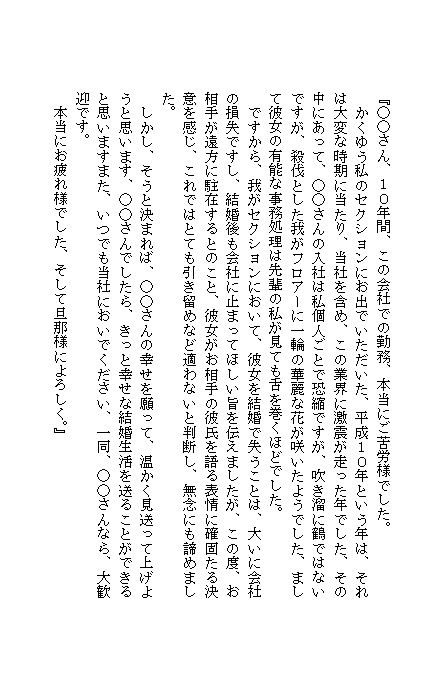 『○○さん、10年間、この会社での勤務、本当にご苦労様でした。
かくゆう私のセクションにお出でいただいた、平成10年という年は、それ
は大変な時期に当たり、当社を含め、この業界に激震が走った年でした、その
中にあって、○○さんの入社は私個人ごとで恐縮ですが、吹き溜に鶴ではない
ですが、殺伐とした我がフロアーに一輪の華麗な花が咲いたようでした、まし
て彼女の有能な事務処理は先輩の私が見ても舌を巻くほどでした。
ですから、我がセクションにおいて、彼女を結婚で失うことは、大いに会社
の損失ですし、結婚後も会社に止まってほしい旨を伝えましたが、この度、お
相手が遠方に駐在するとのこと、彼女がお相手の彼氏を語る表情に確固たる決
意を感じ、これではとても引き留めなど適わないと判断し、無念にも諦めまし
た。
しかし、そうと決まれば、○○さんの幸せを願って、温かく見送って上げよ
うと思います、○○さんでしたら、きっと幸せな結婚生活を送ることができる
と思いますまた、いつでも当社においでください、一同、○○さんなら、大歓
迎です。
本当にお疲れ様でした、そして旦那様によろしく。』